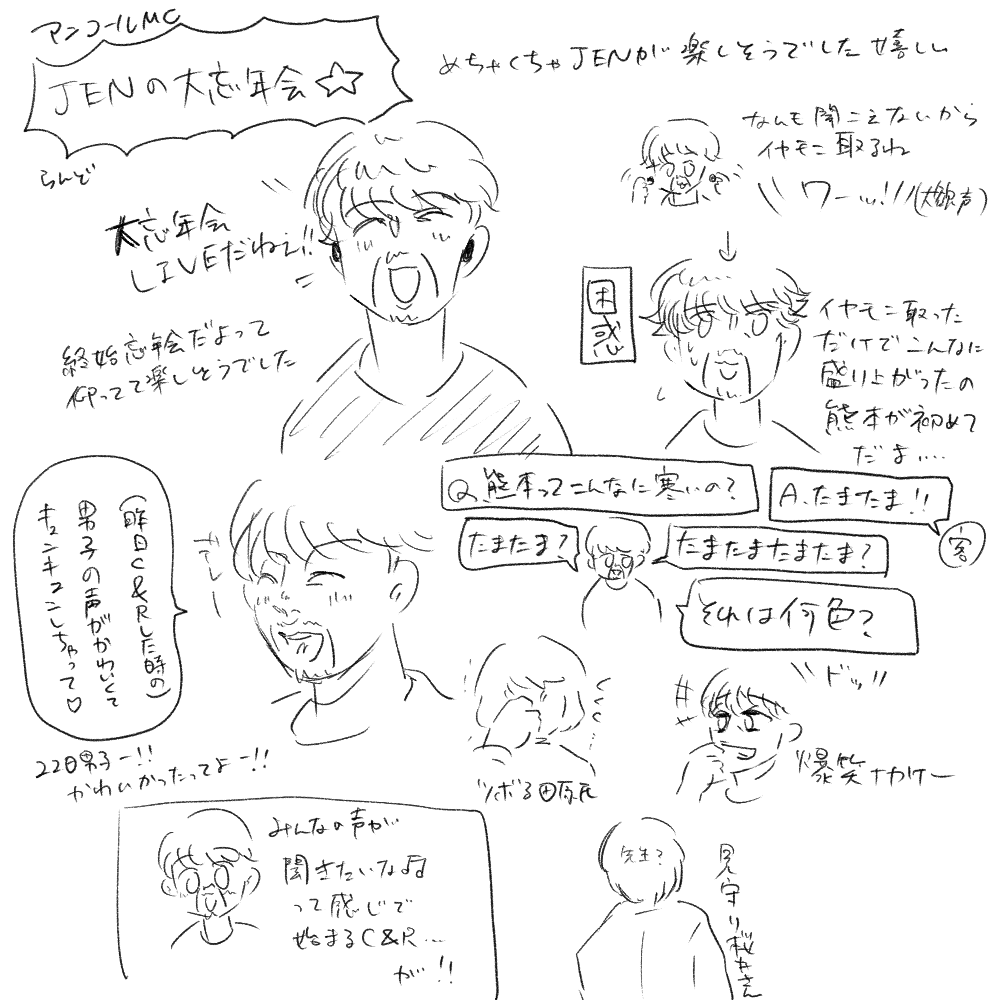 アンコールMC
JENの大忘年会☆
らんど
めちゃくちゃJENが楽しそうでした嬉しい
大忘年会
LIVEだねぇ!!
終始忘年会だよって
仰ってて楽しそうでした
なんも聞こえないから
イヤモニ取るね
ワーッ!!!(大歓声)
↓
困惑
イヤモニ取った
だけでこんなに
盛り上がったの
熊本が初めて
だよ....
Q.熊本ってこんなに寒いの?
A.たまたま!!
客
たまたま?
たまたまたまたま?
それは何色?
(昨日C&Rした時の)
男子の声がかわいくて
キュンキュンしちゃって♡
22日男子ー!!
かわいかったってよー!!
ツボる田原氏
ドッ!!
爆笑ナカケー
みんなの声が
聞きたいな♫
って感じで
始まるC&R...
が!!
先生?
見守り桜井さん